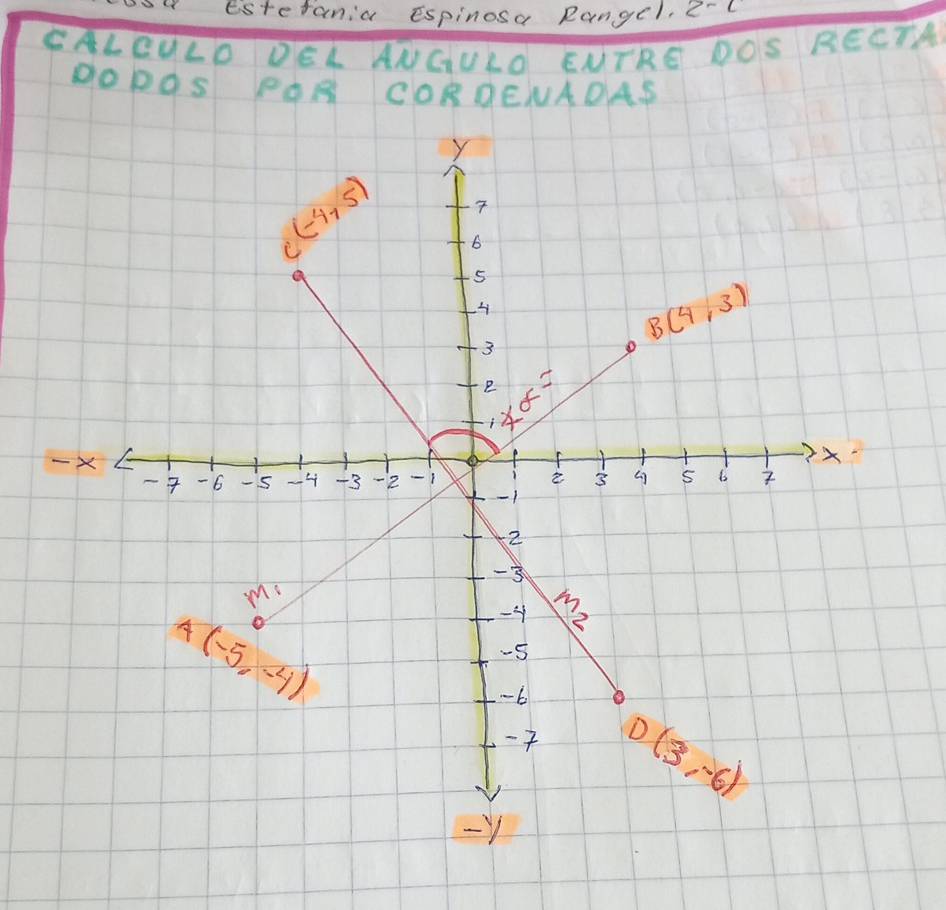 Estefania Espinosa Rangel. 2-
CALCULO DEL ANGULO ENTRE DOS RECTA
DODOS POR CORDENADAS
y
7
C(-4,5)
6
5
4
B(4,3)
3
2
∡α=
1
-x
x
-7 -6 -5 -4 -3 -2 -1 1 2 3 4 5 6 7
-1
-2
-3
m1
m2
-4
A(-5,-4)
-5
-6
D(3,-6)
-7
-y